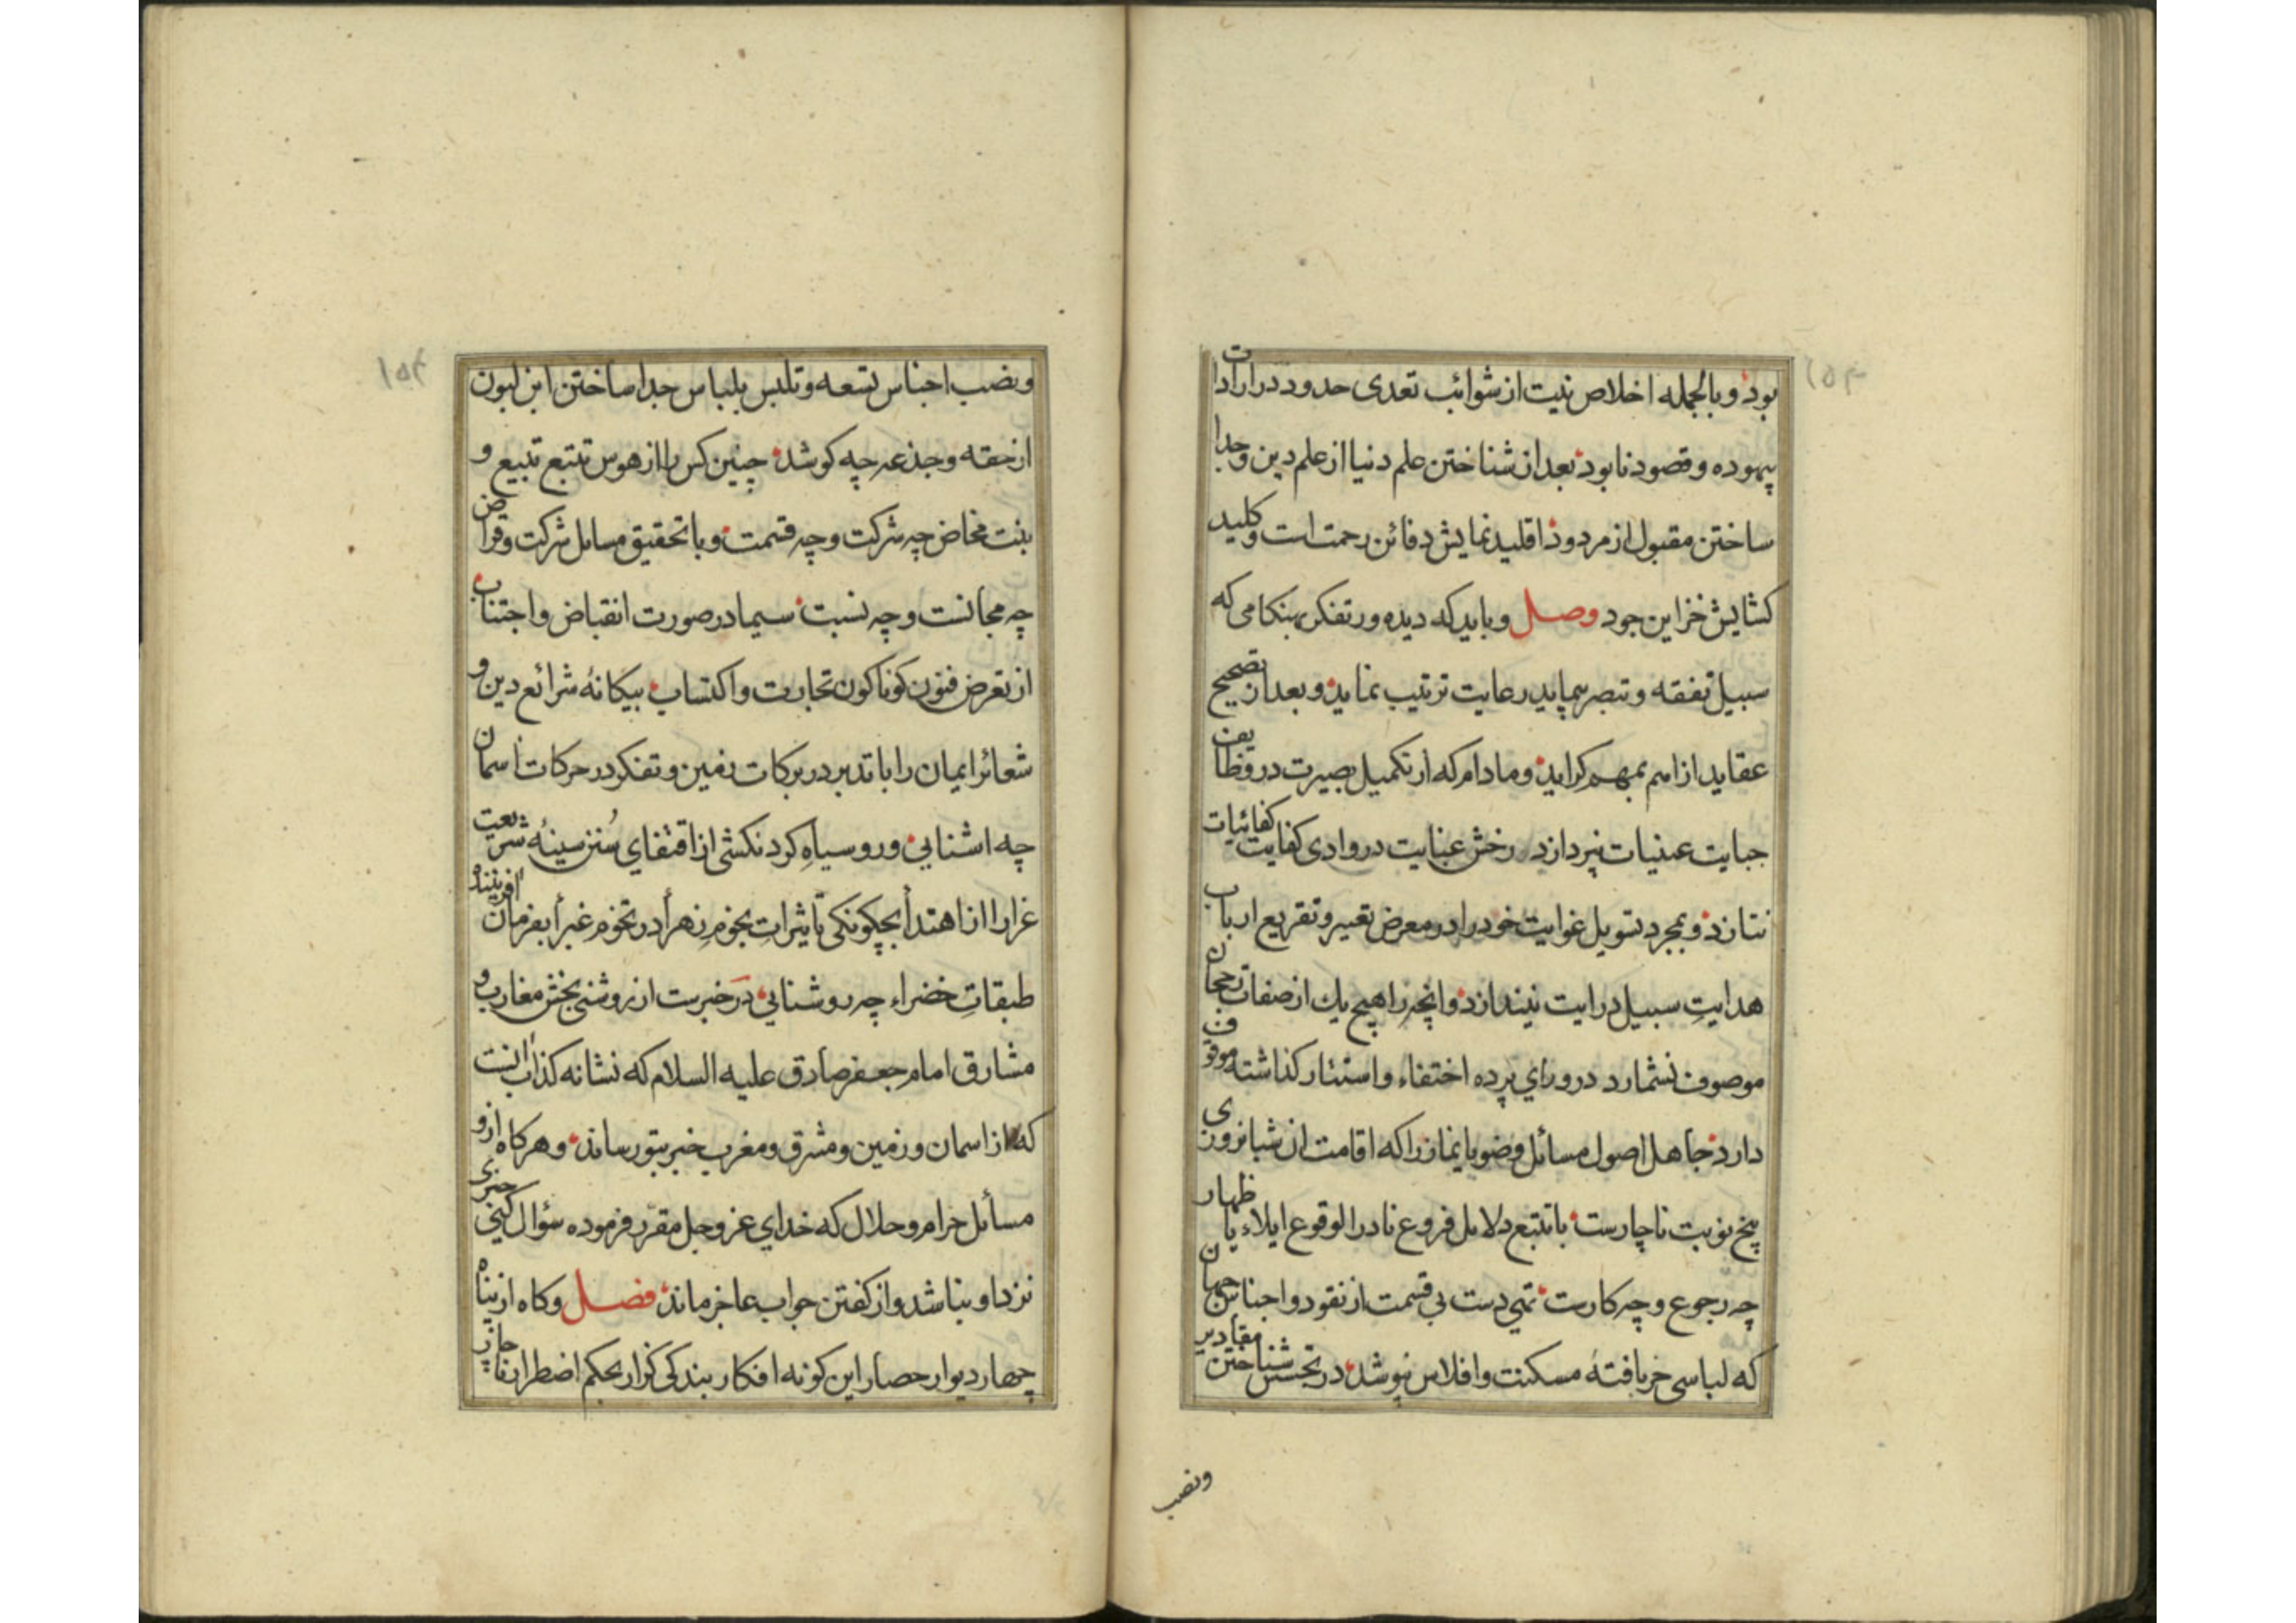 بود و بالجمله اخلاص نیت از شوائب تعدی حدود در ارادات
بیهوده و قصود نابود بعد از شناختن علم دنیا از علم دین و جدا
ساختن مقبول از مردود اقلید نمایش دفائن رحمت است و کلید
کشایش خزاین جود وصل و باید که دیده ور تفکر بهنکامی که
سبیل تفقه و تبصر پیماید رعایت ترتیب نماید و بعد از تصحیح
عقاید از اهم بمهم کراید و مادام که از تکمیل بصیرت در وظایف
جبایت عینیات نپردازد رخش عنایت در وادی کفایت کفائیات
نتازد و بمجرد تسویل غوایت خود را در معرض تعییر و تقریع ارباب
هدایتِ سبیل درایت نیندازد و انچه را هیچ یك از صفات رجحان
موصوف نشمارد در ورای پرده اختفاء و استتار کذاشته موقوف
دارد جاهل اصول مسائل وضو یا نماز را که اقامت ان شبانروزی
پنج نوبت ناچارست با تتبع دلایل فروع نادر الوقوع ایلاء یا ظهار
چه رجوع و چه کارست تهی دست بی قسمت از نقود و اجناس جهان
که لباسی جز بافتهٔ مسکنت و افلاس نپوشد در تجسس شناختن مقادیر
ونصب
ونصب اجناس تسعه و تلبس بلباس جدا ساختن ابن لبون
از حقه و جذعه چه کوشد چنین کس را از هوس تتبع تبیع و
بنت مخاض چه شرکت و چه قسمت و با تحقیق مسایل شرکت و قراض
چه مجانست و چه نسبت سیما در صورت انقباض و اجتناب
از تعرض فنون کوناکون تجارت و اکتساب بیکانهٔ شرائع دین و
شعائر ایمان را با تدبر در برکات زمین و تفکر در حرکات اسمان
چه اشنایی و رو سیاهِ کردنکشی از اقتفای سُنن سنیهٔ شریعت
غرا را از اهتدأ بچکونکی تأثیراتِ نجومِ زهرأ در تخومِ غبرأ بفرمان افریننده
طبقاتِ خضراء چه روشنایی در خبرست از روشنی بخش مغارب و
مشارق امام جعفر صادق علیه السلام که نشانه کذاب انست
که از اسمان و زمین و مشرق و مغرب خبر بتو رساند و هرکاه ازو
مسأئل حرام و حلال که خدای عز و جل مقرّر فرموده سؤال کنی خبری
نزد او نباشد و از کفتن جواب عاجز ماند فصل و کاه از پناه
چهار دیوار حصار این کونه افکار بندکی کزار بحکم اضطرار